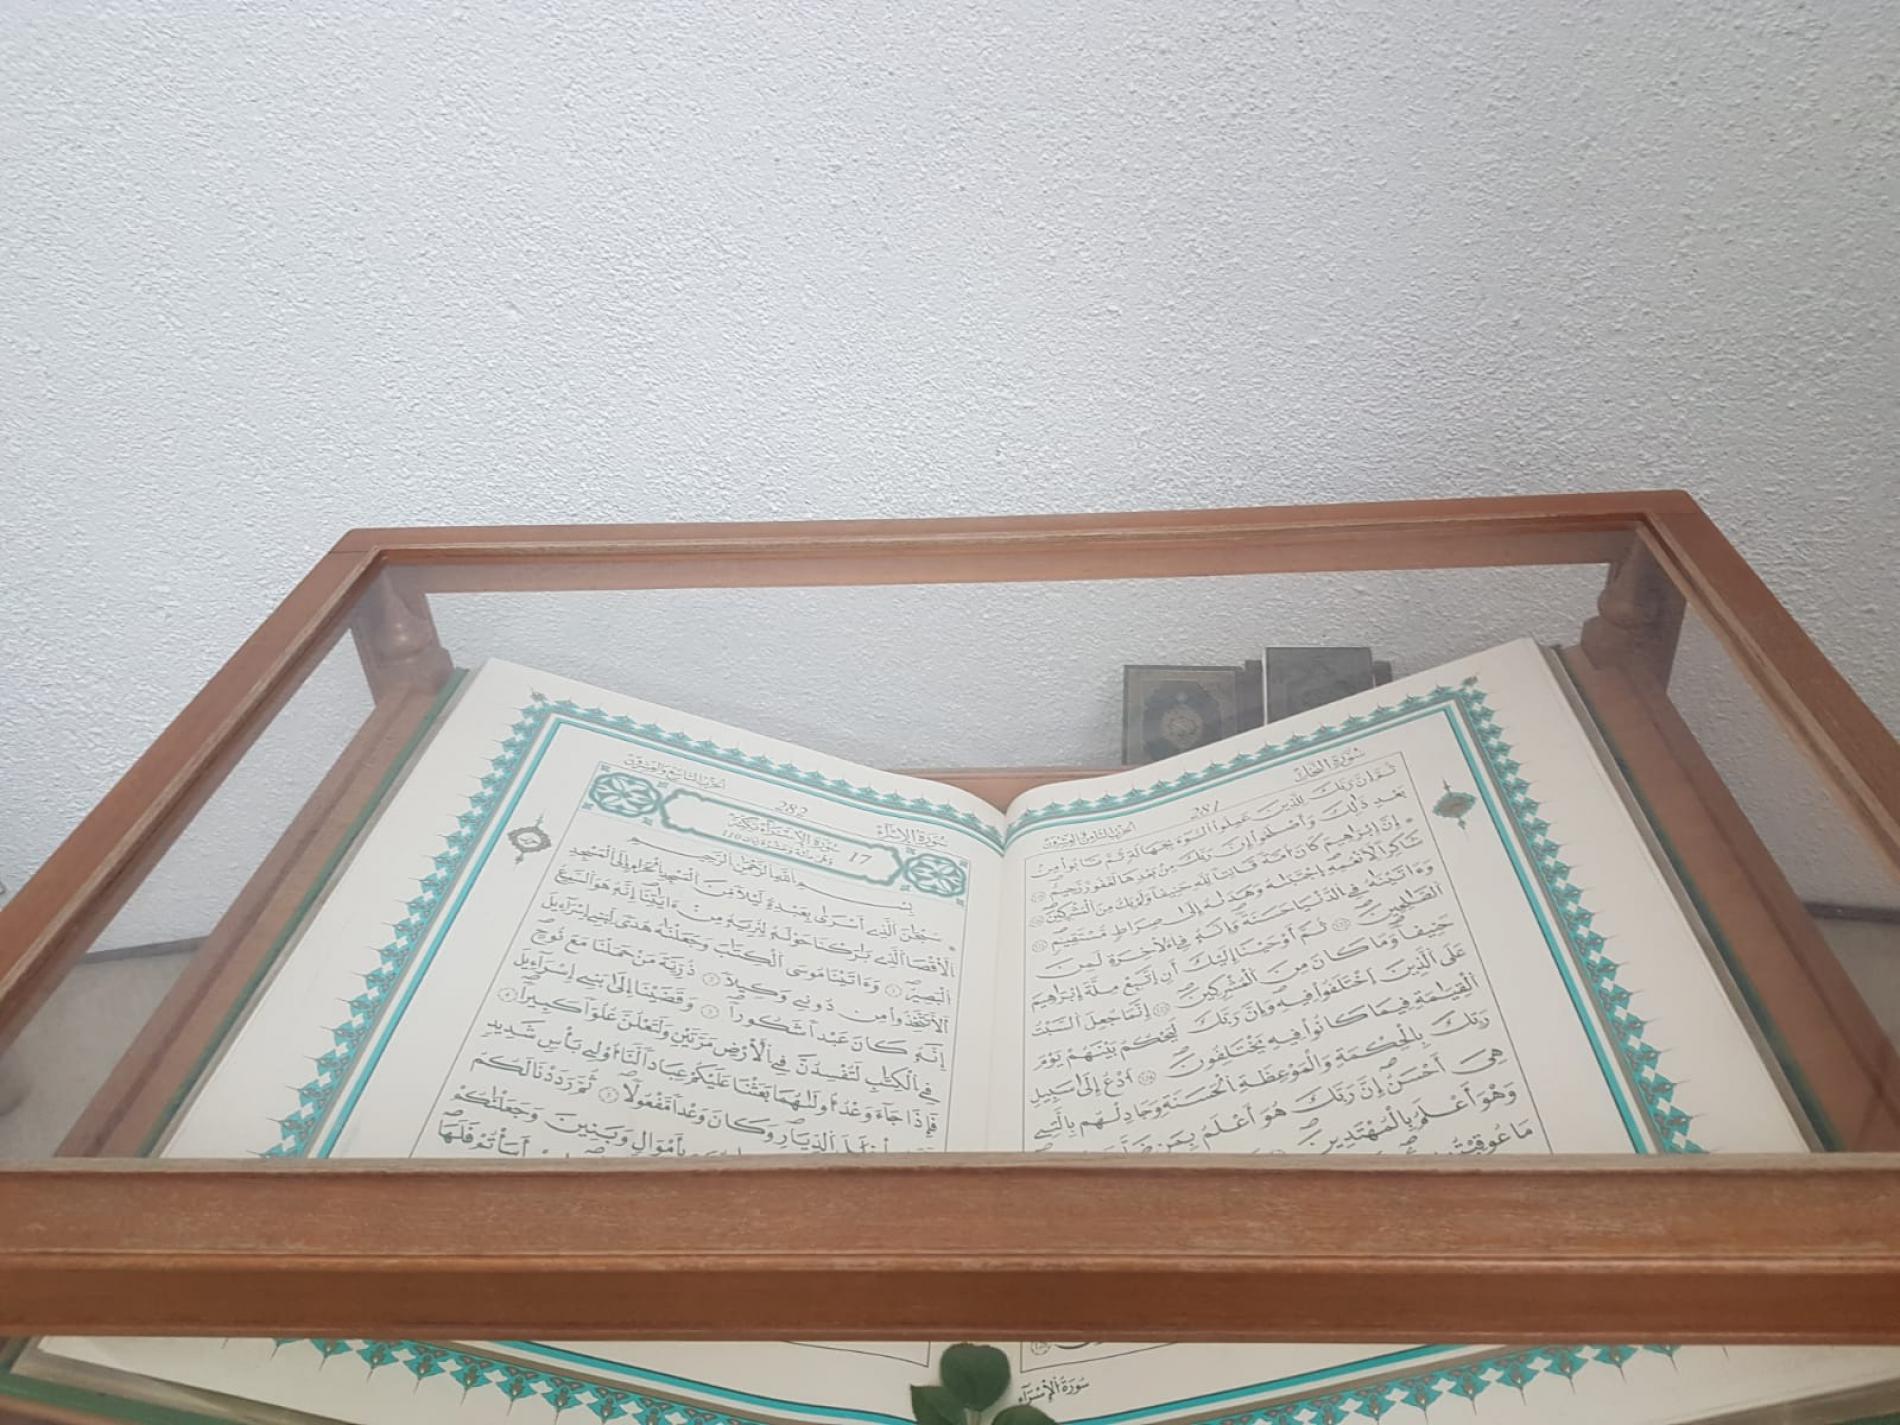 سورة النحل
281
الحزب الثامن والعشرون
ثم ان ربك للذين عملوا السوء بجهالة ثم تابوا من
بعد ذلك وأصلحوا إن ربك من بعدها لغفور رحيم
إن إبراهيم كان أمة قانتا لله حنيفا ولم يك من المشركين
شاكرا لأنعمه اجتباه وهداه إلى صراط مستقيم
وءاتيناه في الدنيا حسنة وإنه في الآخرة لمن
الصالحين ثم أوحينا إليك أن اتبع ملة إبراهيم
حنيفا وما كان من المشركين إنما جعل السبت
على الذين اختلفوا فيه وإن ربك ليحكم بينهم يوم
القيامة فيما كانوا فيه يختلفون ادع إلى سبيل
ربك بالحكمة والموعظة الحسنة وجادلهم بالتي
هي أحسن إن ربك هو أعلم بمن ضل
وهو أعلم بالمهتدين
ما عوقبتم
سورة الإسراء
282
الحزب التاسع والعشرون
17 سورة الإسراء مكية
وهي مائة وعشرة ءايات 110
بسم الله الرحمن الرحيم
سبحن الذي أسرى بعبده ليلا من المسجد الحرام إلى المسجد
الأقصا الذي بركنا حوله لنريه من ءايتنا إنه هو السميع
البصير وءاتينا موسى الكتب وجعلنه هدى لبني إسراءيل
ألا تتخذوا من دوني وكيلا ذرية من حملنا مع نوح
إنه كان عبدا شكورا وقضينا إلى بني إسراءيل
في الكتب لتفسدن في الأرض مرتين ولتعلن علوا كبيرا
فإذا جاء وعد أولىهما بعثنا عليكم عبادا لنا أولي بأس شديد
الديار وكان وعدا مفعولا ثم رددنا لكم
بأموال وبنين وجعلنكم
أسأتم فلها
سورة الإسراء